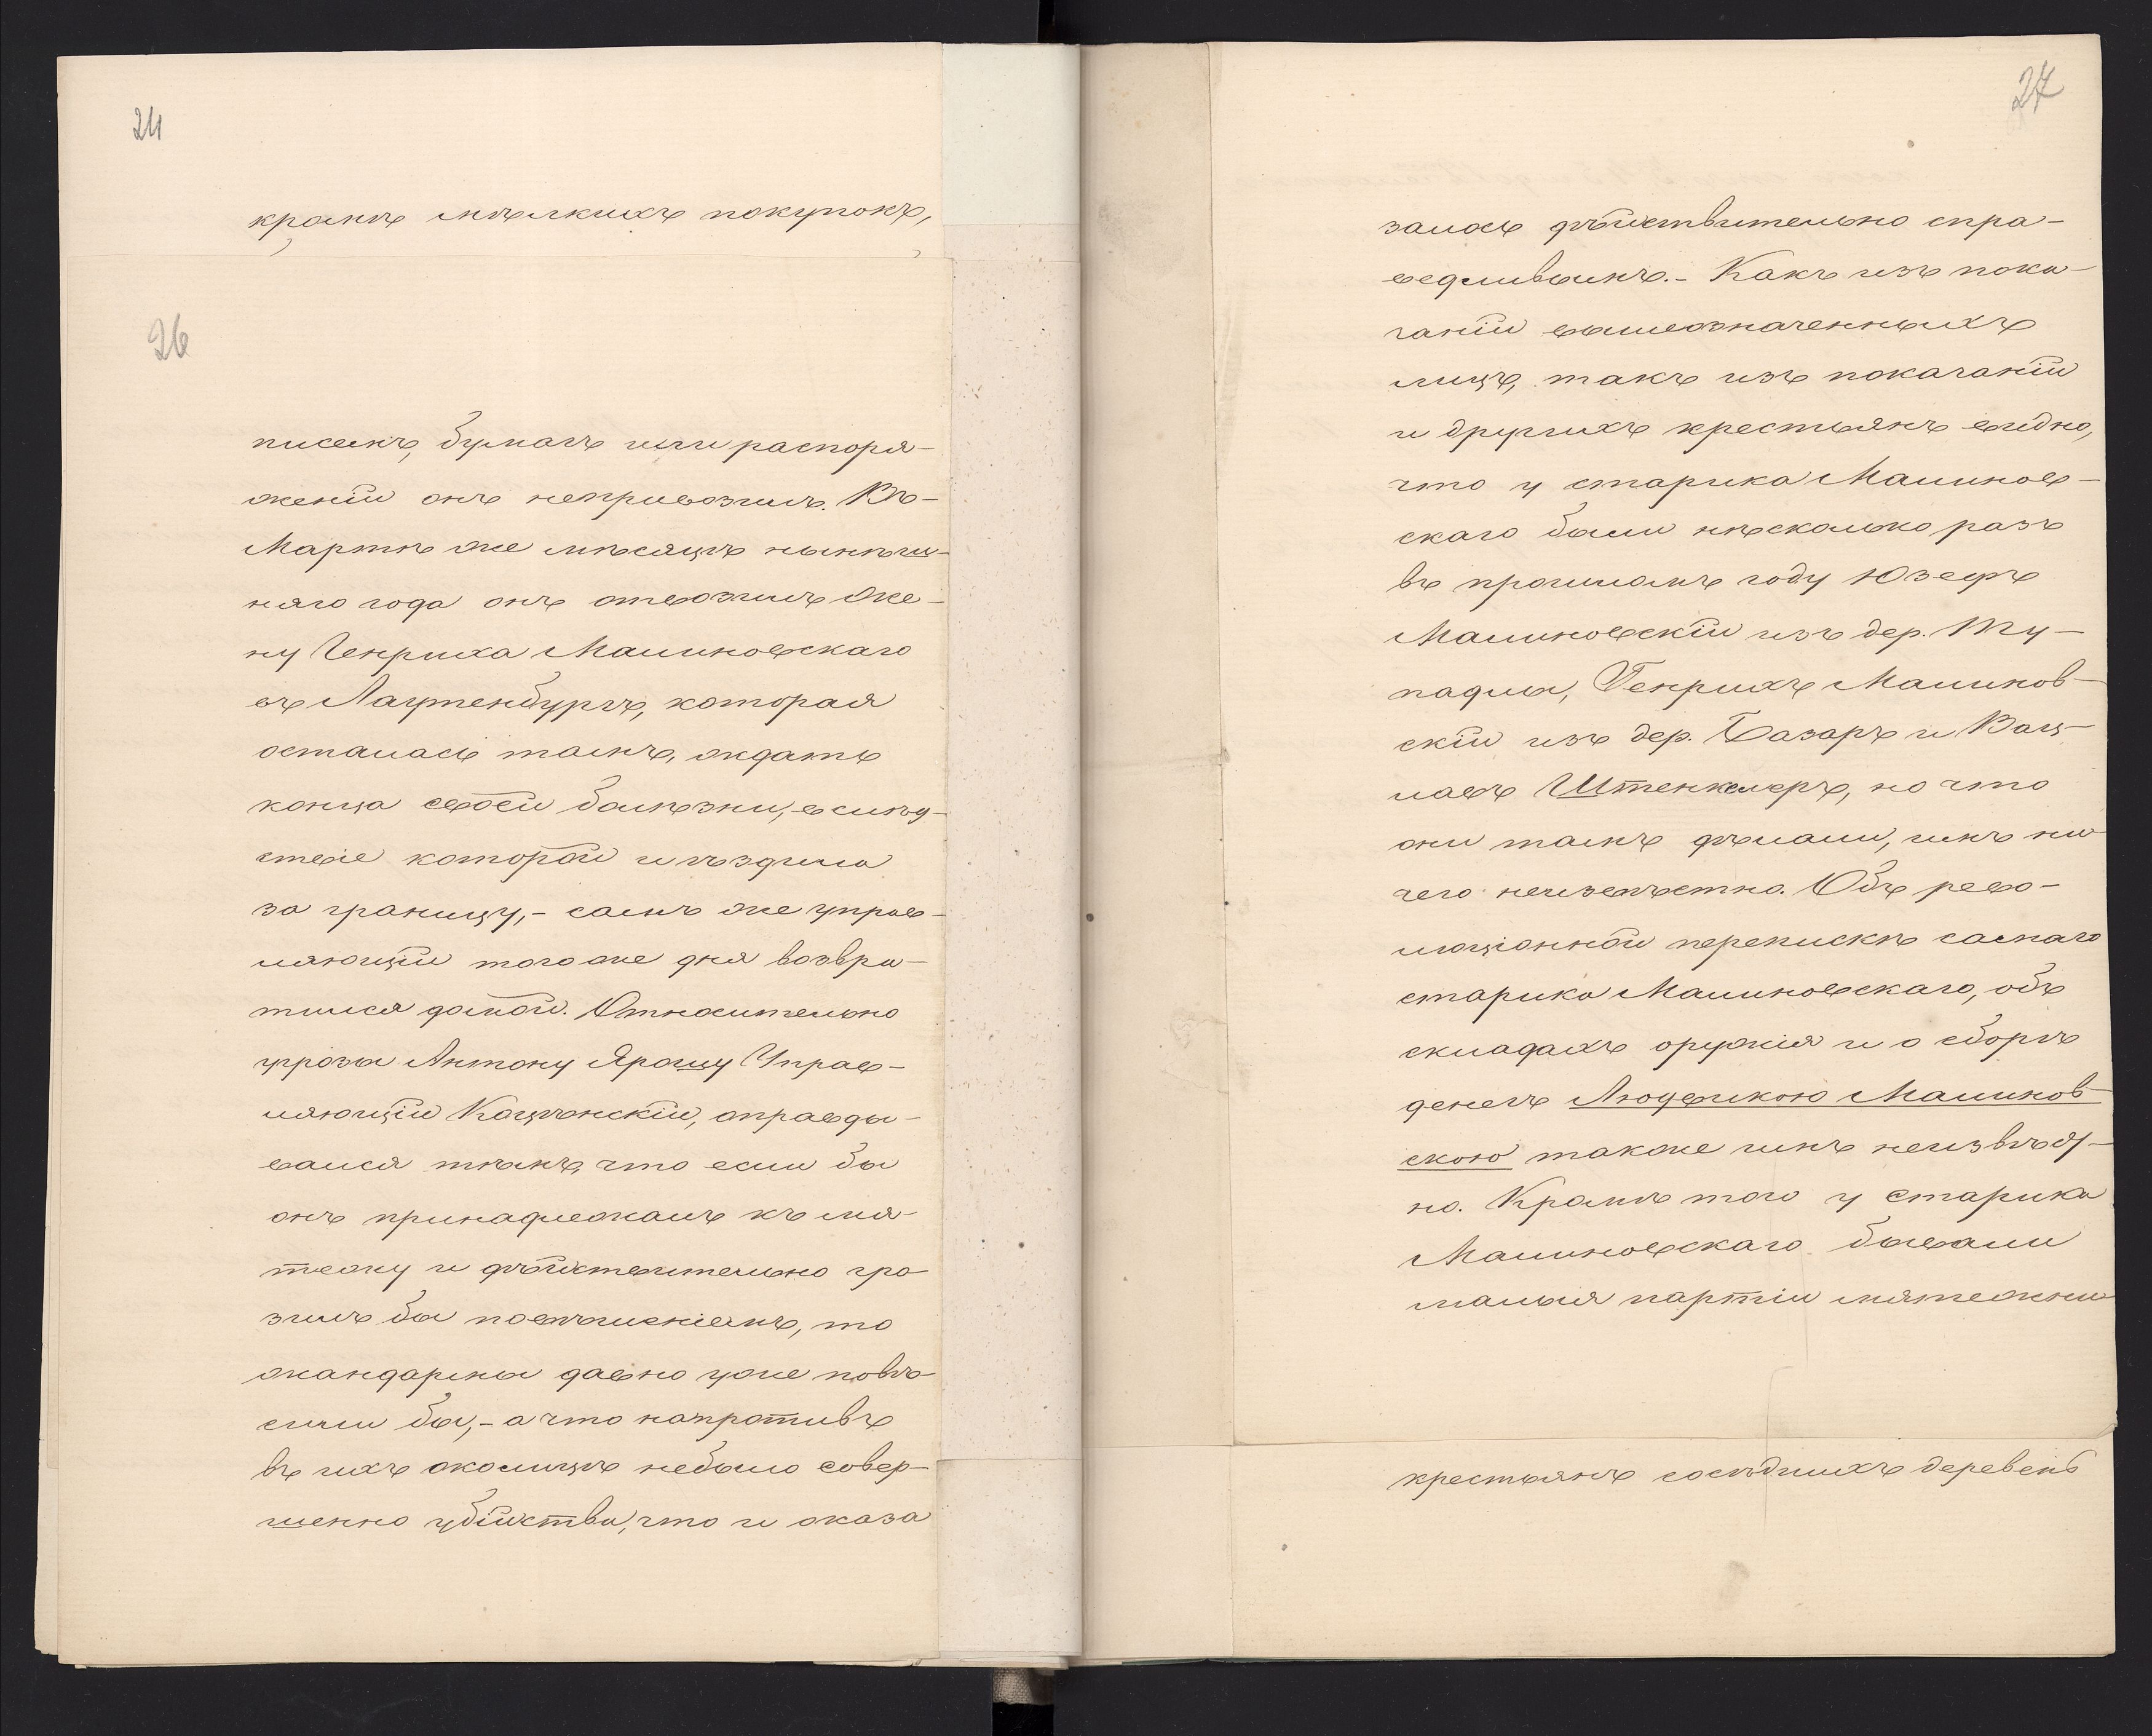 24
кромѣ мѣлкихъ покупокъ,
26
писемъ, бумагъ или распоря-
женій онъ непривозилъ. Въ-
Мартѣ же мѣсяцѣ нынѣш-
няго года онъ отвозилъ Же-
ну Генриха Малиновскаго
въ Лаутенбургъ, которая
осталась тамъ, ждать
конца своей болѣзни, вслѣд-
ствіе которой и ѣздила
за границу,- самъ же управ-
ляющій тогоже дня возвра-
тился домой. Относительно
угрозы Антону Ярошу Управ-
ляющій Коцѣнскій, оправды-
вался тѣмъ, что если бы
онъ принадлежалъ къ мя-
тежу и дѣйствительно гро
зилъ бы повѣшеніемъ, то
жандармы давно уже повѣ-
сили бы,- а что напротивъ
въ ихъ околицѣ небыло совер-
шенно убійства, что и оказа
27
залось дѣйствительно спра-
ведливымъ.- Какъ изъ пока-
заній вышеозначенныхъ
лицъ, такъ изъ показаній
и другихъ крестьянъ видно,
что у старика Малинов-
скаго были нѣсколько разъ
въ прошломъ году Юзефъ
Малиновскій изъ дер. Ту-
падлы, Генрихъ Малинов-
скій изъ дер. Базаръ и Вац-
лавъ Штенкмеръ, но что
они тамъ дѣлали, имъ ни
чего неизвѣстно. Объ рево-
люціонной перепискѣ самаго
старика Малиновскаго, объ
складахъ оружія и о сборѣ
денегъ Людвикою Малинов-
скою также имъ неизвѣст-
но. Кромѣ того у старика
Малиновскаго бывали
малыя партіи мятежни
крестьянъ сосѣднихъ деревень